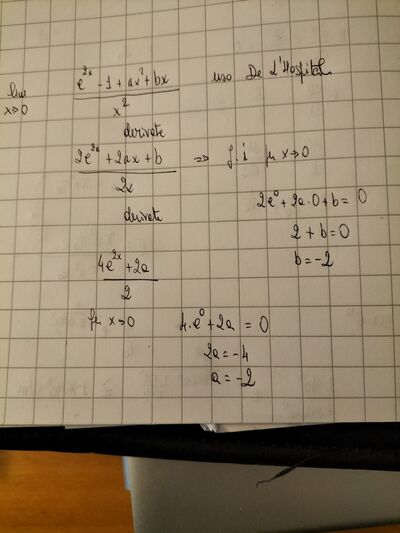 lim x→0 (e^2x - 1 + ax² + bx) / x² uso De L'Hospital
derivate
(2e^2x + 2ax + b) / 2x ⇒ f.i per x→0
derivate
2e^0 + 2a·0 + b = 0
2 + b = 0
b = -2
(4e^2x + 2a) / 2
per x→0 4·e^0 + 2a = 0
2a = -4
a = -2